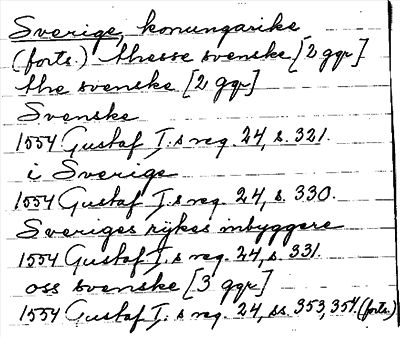 Sverige, konungarike
(forts.) thesse svenske [2 ggr]
the svenske [2 ggr]
Svenske
1554 Gustaf I:s reg. 24, s. 321.
i Sverige
1554 Gustaf I:s reg. 24, s. 330.
Sveriges rykes inbyggere
1554 Gustaf I:s reg. 24, s. 331.
oss svenske [3 ggr]
1554 Gustaf I:s reg. 24, ss. 353, 354. (forts.)